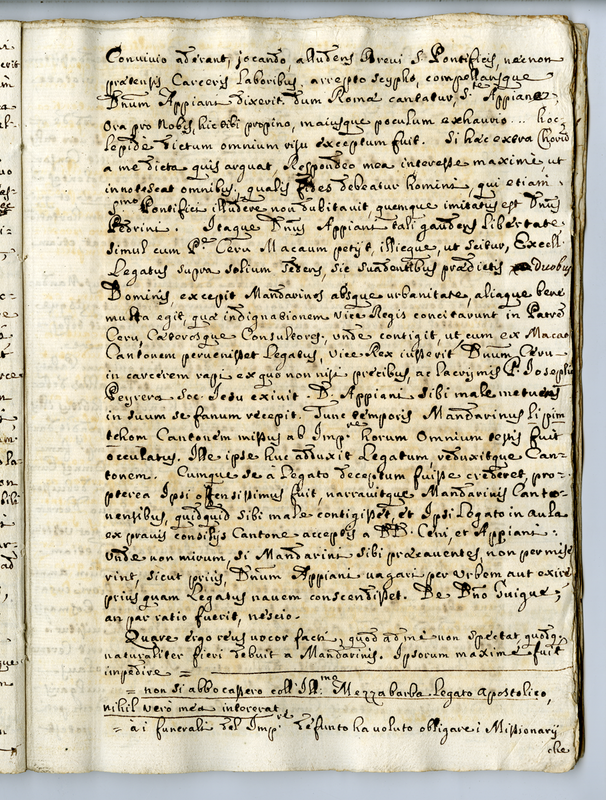 Convivio aderant, jocando, alludens Brevi S. Pontificis, necnon
præteritis Carceris laboribus, arrepto scypho, compellansque
Dnum Appiani dixerit, dum Romæ cantatur, Ste Appiane,
Ora pro Nobis, hic tibi propino, maiusque poculum exhaurio... hoc
lepide dictum omnium risu exceptum fuit. Si hæc extra
a me dicta quis arguat, Respondeo mea interesse maxime, ut
innotescat omnibus, qualis fides debeatur homini, qui etiam
Pontifici illudere non dubitavit, quemque imitatus est Dnus
Pedrini. Itaque Dnus Appiani tali gaudens libertate
simul cum P. Ceru Macaum petijt, illicque, ut scitur, Excell.
Legatus supra solium sedens, sic suadentibus prædictis duobus
Dominis, excepit Mandarinos absque urbanitate, aliaque bene
multa egit, quæ indignationem Vice Regis concitarunt in Patrē
Ceru, Cæterosque Consultores, unde contigit, ut cum ex Macao
Cantonem pervenisset Legatus, Vice Rex iusserit Dnum Ceru
in carcerem rapi ex quo non nisi precibus, ac lacrymis P. Josephi
Peyrera Soc. Iesu exivit. D. Appiani sibi male metuens
in suum se fanum recepit. Tunc temporis Mandarinus Li pim
tchom Cantonem missus ab Impre horum Omnium testis fuit
occulatus. Ille ipse huc adduxit Legatum, reduxitque Can-
tonem. Cumque se à Legato deceptum fuisse crederet, pro-
pterea Ipsi offensissimus fuit, narravitque Mandarinis Canto-
nensibus, quidquid sibi male contigisset, et Ipsi Legato in aula
ex pravis consilijs Cantone acceptis a DD. Ceru, et Appiani:
Unde non mirum, si Mandarini sibi præcaventes, non permise
rint, sicut prius, Dnum Appiani vagari per Urbem aut exire
prius quam Legatus navem conscendisset. De Dno Guigue,
an par ratio fuerit, nescio.
Quare ergo reus vocor facti, quod ad me non spectat, quodq
naturaliter fieri debuit a Mandarinis. Ipsorum maxime fuit
impedire =
= non si abboccassero coll Ill:mo Mezzabarba Legato Apostolico,
nihil vero mea intererat
= à i funerali del Impre defunto ha voluto obligare i Missionarij
che